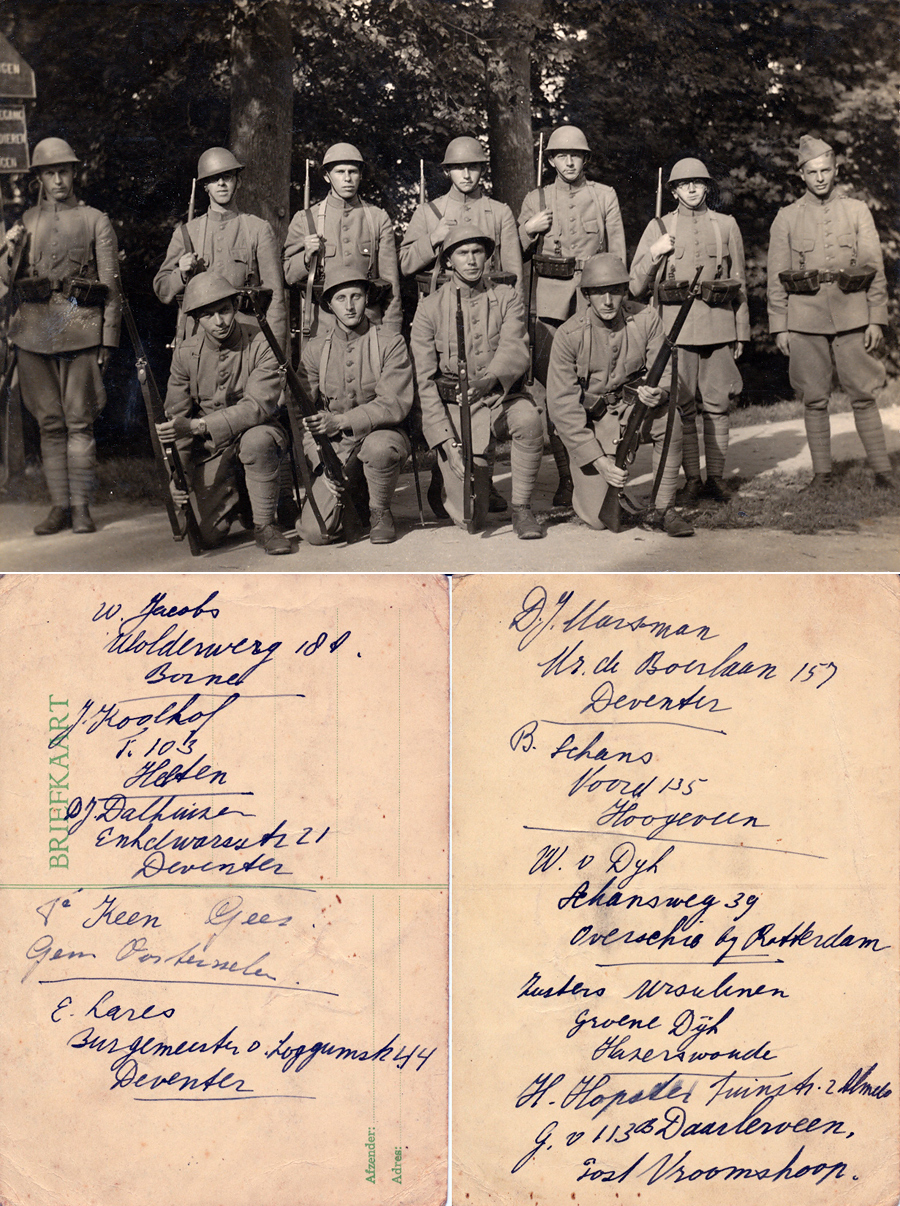 GEN
EGANG
DIEREN
GEN
W. Jacobs
Wolderwerg 18
Borne
J. Koolhof
T. 103
Holten
D.J. Dalhuizen
21
Deventer
BRIEFKAART
Keen Gees.
Gem Oosterhesselen
E. Lares
Burgemeester v. 44
Deventer
Afzender:
Adres:
D.J. Marsman
Mr. de Boerlaan 157
Deventer
B. Schans
Voord 135
Hoogeveen
W. v Dyk
Schansweg 39
Overschie by Rotterdam
Zusters Ursulinen
Groene Dijk
Hazerswoude
H. Tuinstr. 2 Almelo
G. v 113 Daarlerveen,
Post Vroomshoop.